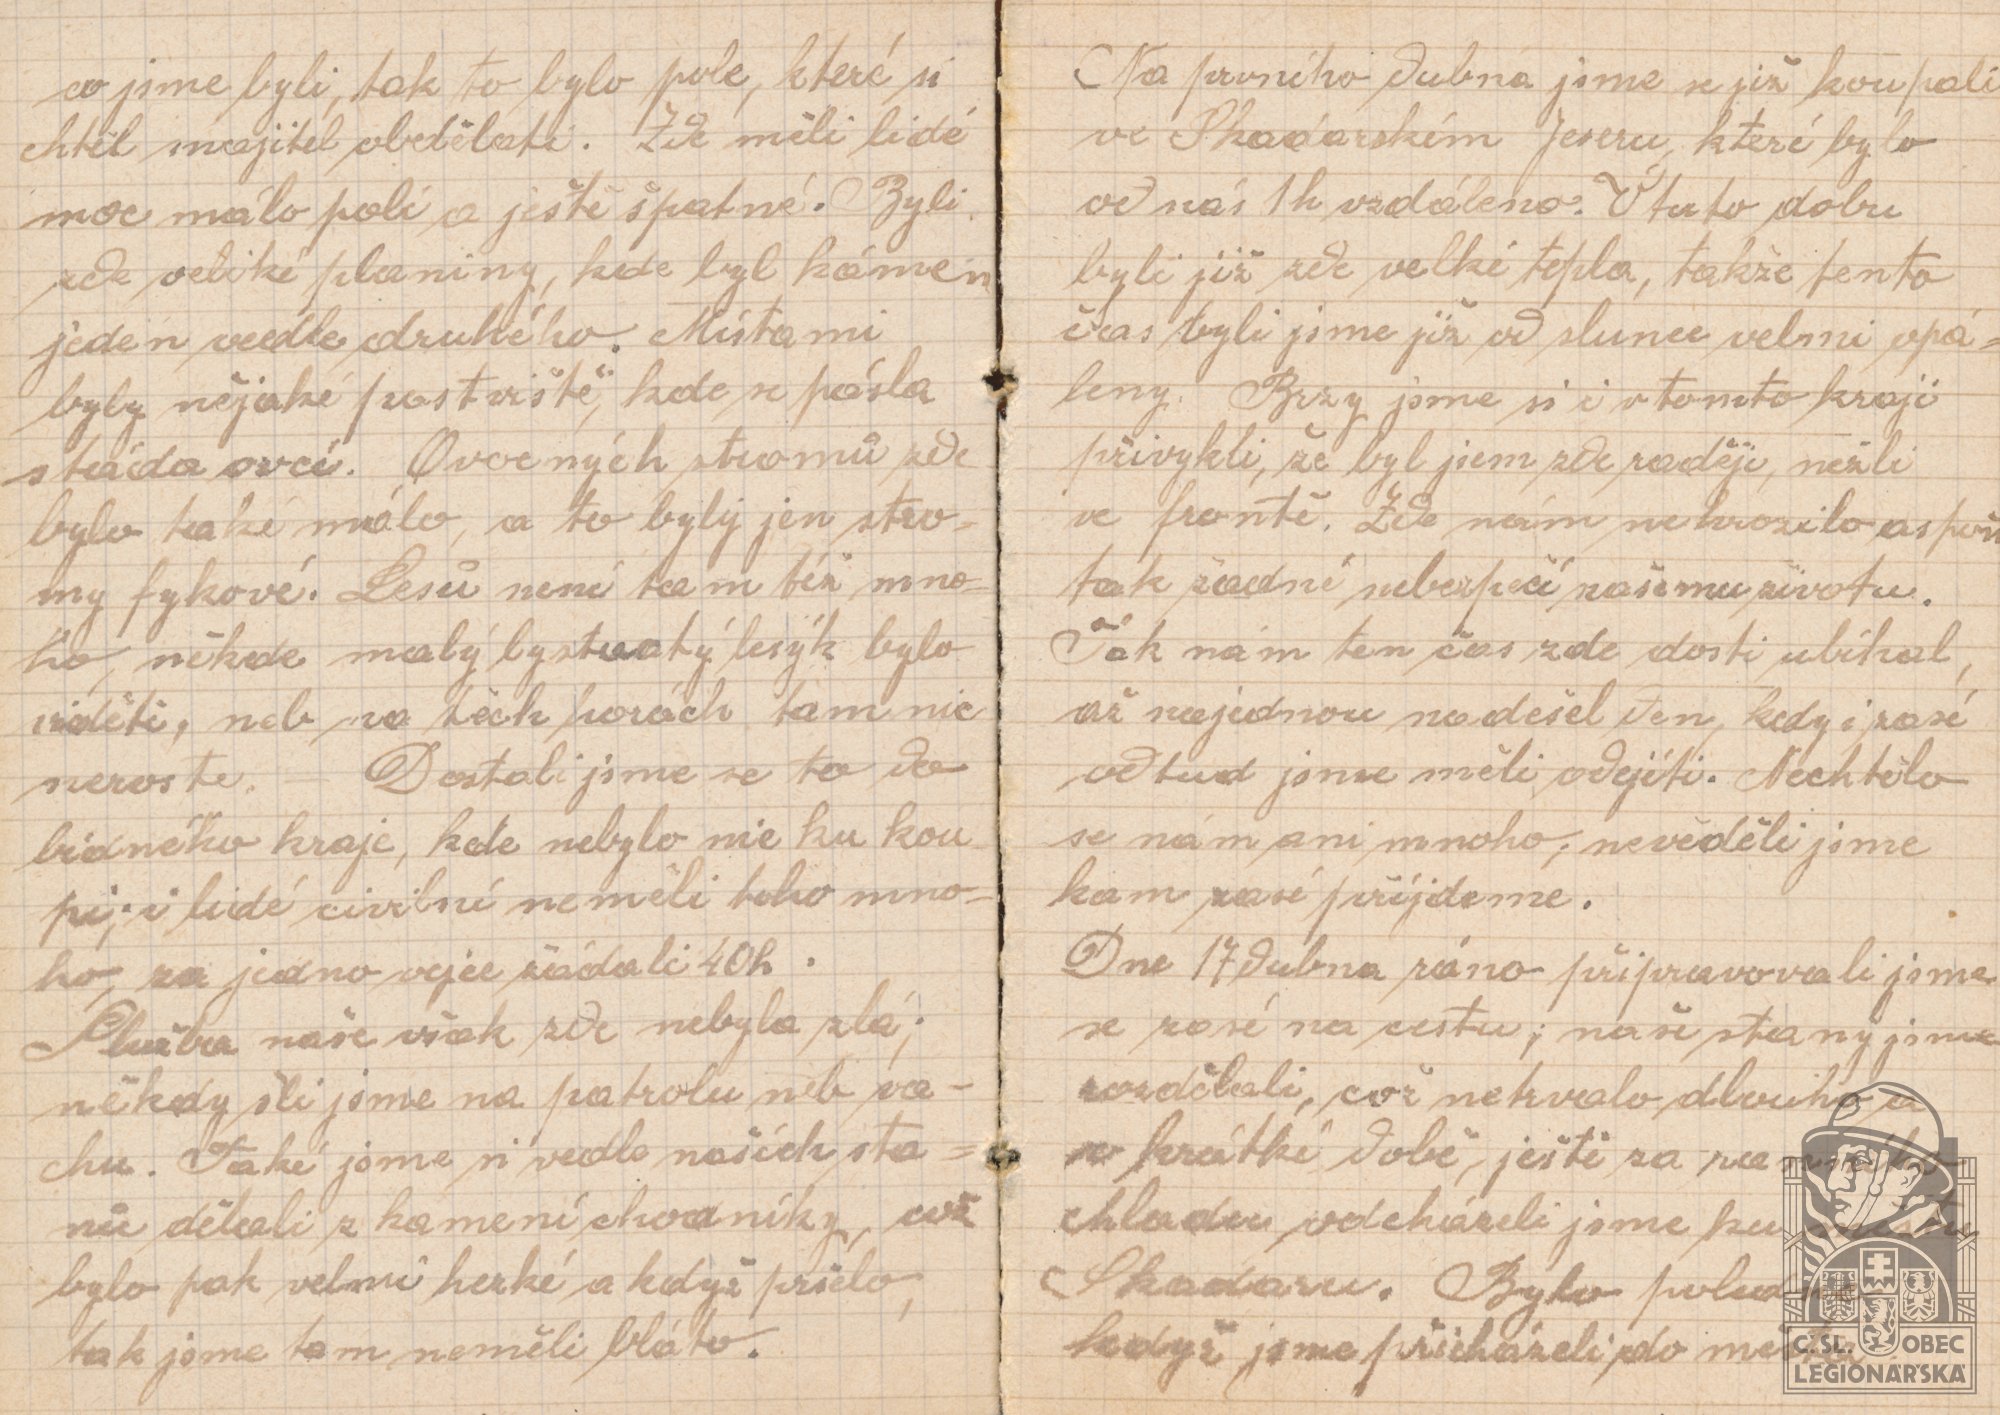 co jsme byli, tak to bylo pole, které si
chtěl majitel obdělati. Zde měli lidé
moc málo polí a ještě špatné. Byli
zde veliké planiny, kde byl kámen
jeden vedle druhého. Místami
byly nějaké pastviště, kde se pásla
stáda ovcí. Ovocných stromů zde
bylo také málo, a to byly jen stro-
my fykové. Lesů není tam též mno-
ho, někde malý bystvatý lesýk bylo
viděti, neb na těch horách tam nic
neroste. — Dostali jsme se to do
bídného kraje, kde nebylo nic ku kou
pi; i lidé civilní neměli toho mno-
ho, za jedno vejce žádali 40h.
Služba naše však zde nebyla zlá;
někdy šli jsme na patrolu neb va-
chu. Také jsme si vedle našich sta=
nů dělali z kamení chodníky, což
bylo pak velmi hezké a když pršelo,
tak jsme tam neměli bláto.
Na prvního dubna jsme se již koupali
ve Skadarském Jeseru, které bylo
od nás 1h vzdáleno. V tuto dobu
byli již zde velké tepla, takže tento
čas byli jsme již od slunce velmi opá=
leny. Brzy jsme si i v tomto kraji
přivykli, že byl jsem zde raději, nežli
ve frontě. Zde nám nehrozilo aspoň
tak žadné nebezpečí našemu životu.
Ták nám ten čas zde dosti ubíhal,
až najednou nadešel den, kdy i zasé
odtud jsme měli odejíti. Nechtělo
se nám ani mnoho; nevěděli jsme
kam zasé příjdeme.
Dne 17 dubna ráno připravovali jsme
se zasé na cestu; naše stany jsme
rozdělali, což netrvalo dlouho a
v krátké době, ještě za ranního
chladu odcházeli jsme ku městu
Skadaru. Bylo poledne
když jsme přicházeli do města
Č.SL. OBEC
LEGIONÁŘSKÁ